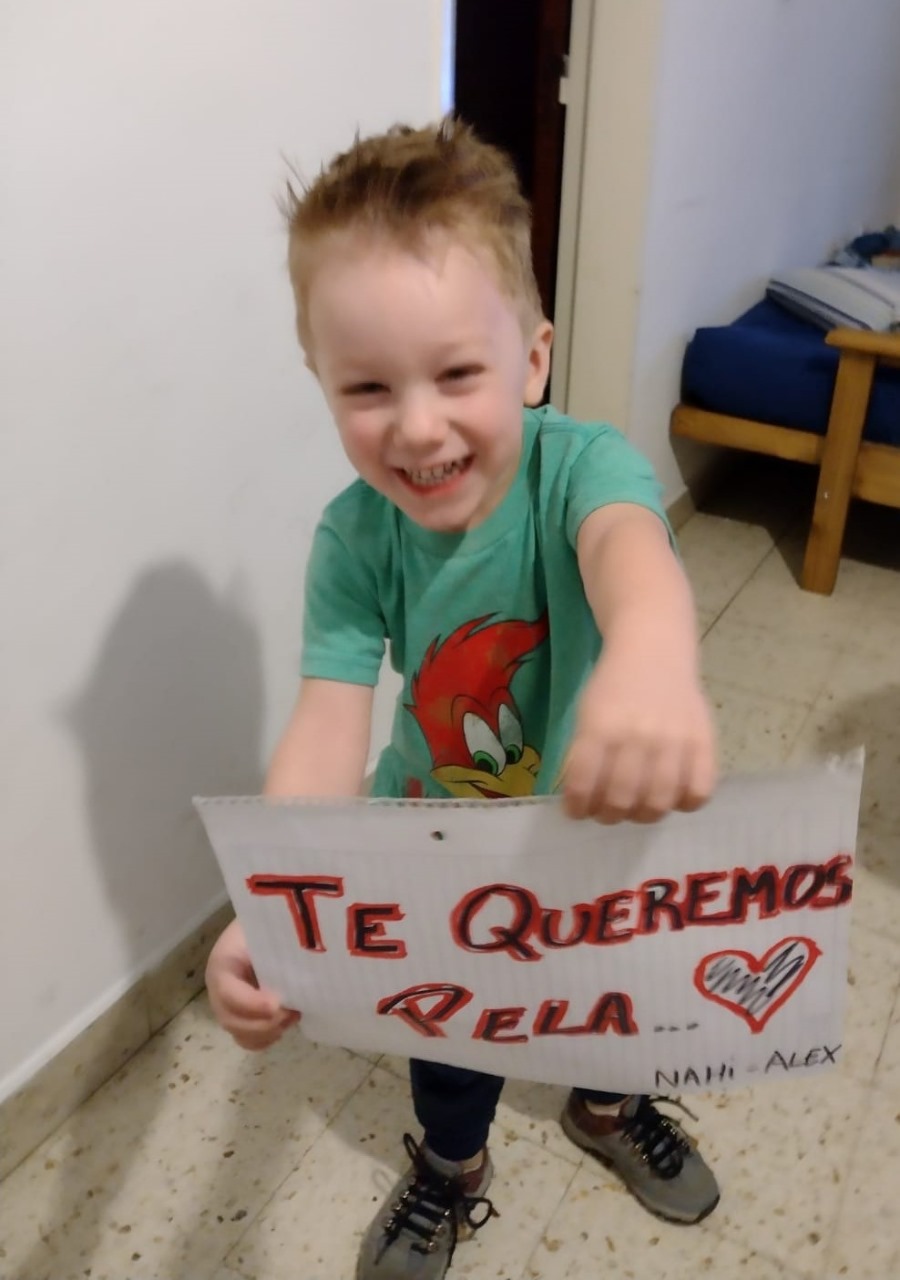 TE QUEREMOS
PELA...
NAHi - ALEX